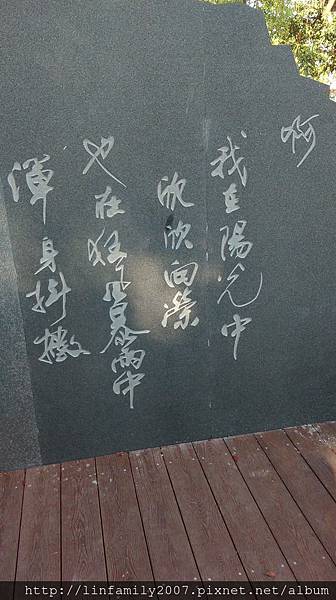 啊
我在陽光中
欣欣向榮
也在狂風暴雨中
渾身抖擻
http://linfamily2007.pixnet.net/album